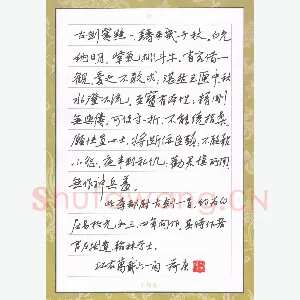 古剑寒黯黯,铸来几千秋。白光
纳日月,紫气排斗牛。有客借一
观,爱之不敢求。湛然玉匣中,秋
水澄不流。至宝有本性,精刚
无与俦。可使寸寸折,不能绕指柔。
愿快直士心,将断佞臣头。不愿报
小怨,夜半刺私仇。劝君慎所用,
无作神兵羞。
此李都尉古剑一首,约为白
居易于元和三、四年间作,其时作者
官左拾遗、翰林学士。